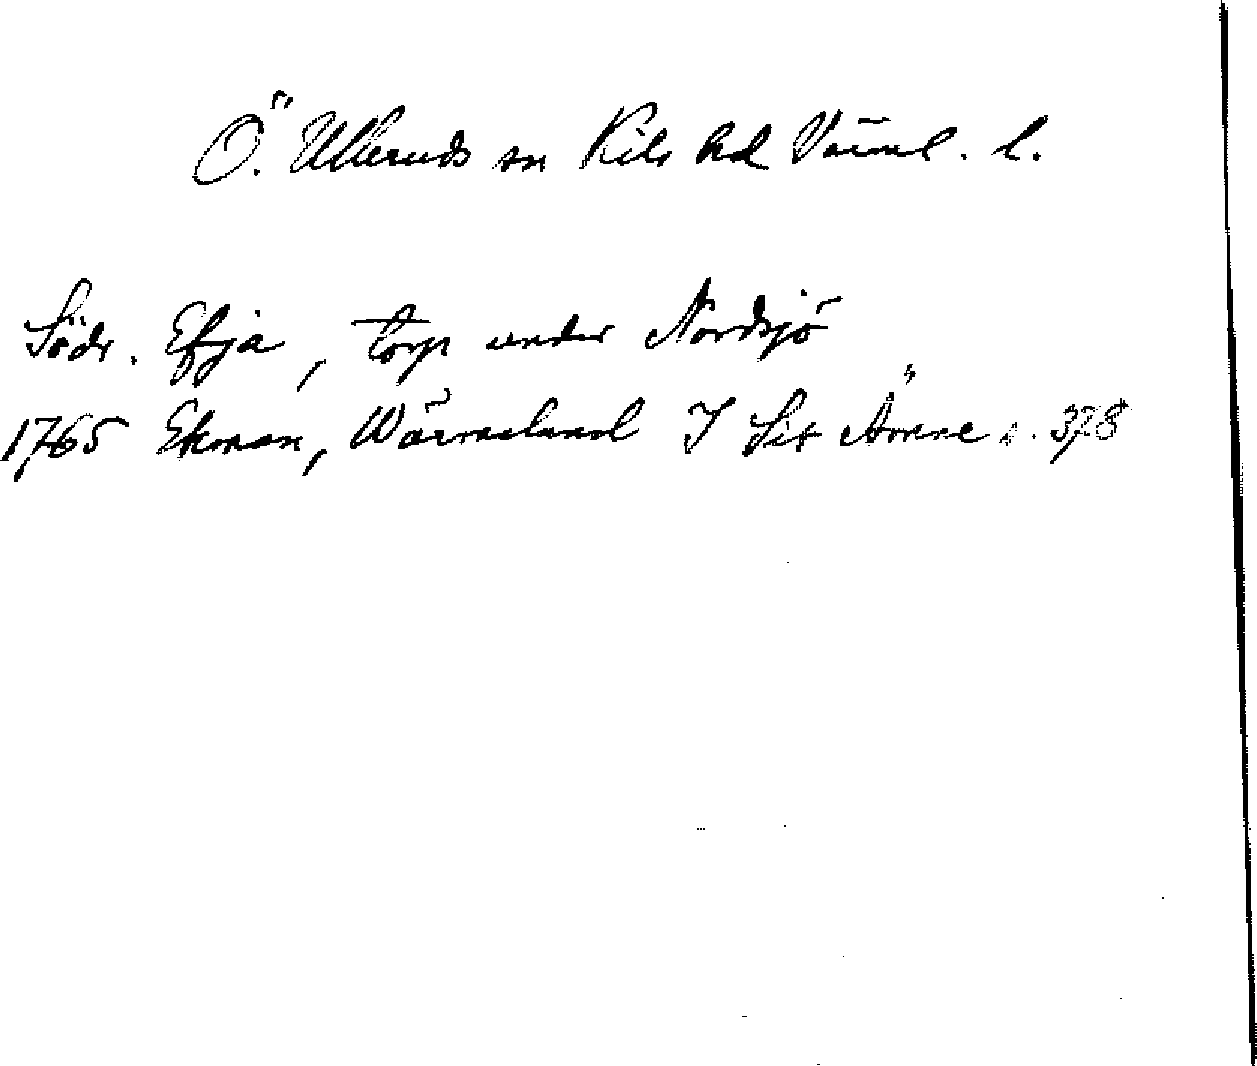 Ö. Ulleruds sn Kils hd Värml. l.
Södr. Efja, torp under Nordsjö
1765 Ekman, Wärmeland I Sit Ämne s. 378